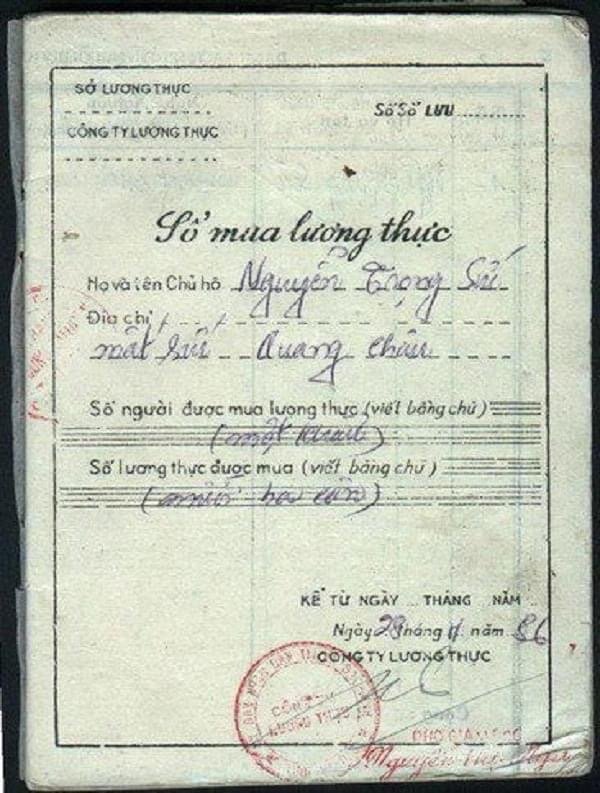 SỞ LƯƠNG THỰC
CÔNG TY LƯƠNG THỰC
Số Sổ LƯU
Sổ mua lương thực
Họ và tên Chủ hộ Nguyễn Trọng Sứ
Địa chỉ
mất sứ Quang Châu
Số người được mua lương thực (viết bằng chữ)
(một khẩu)
Số lương thực được mua (viết bằng chữ)
(mười ba cân)
KỂ TỪ NGÀY THÁNG NĂM
Ngày 28 tháng 11 năm 86
CÔNG TY LƯƠNG THỰC
CÔNG TY
LƯƠNG THỰC
PHÓ GIÁM ĐỐC
Nguyễn